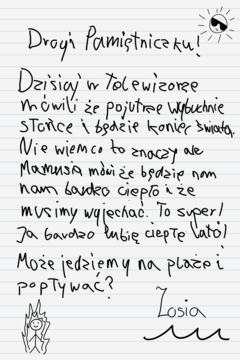 Drogi Pamiętniczku!
Dzisiaj w Telewizorze
mówili że pojutrze wybuchnie
słońce i będzie koniec świata.
Nie wiem co to znaczy ale
Mamusia mówi że będzie nam
nam bardzo ciepło i że
musimy wyjechać. To super!
Ja bardzo lubię ciepłe lato!
Może jedziemy na plażę i
popływać?
Zosia